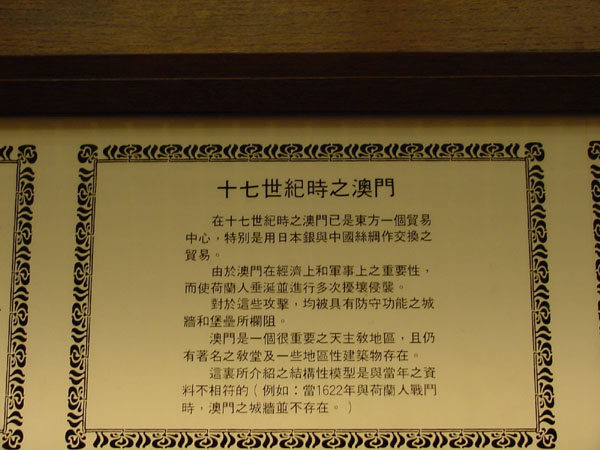 十七世紀時之澳門
在十七世紀時之澳門已是東方一個貿易
中心，特別是用日本銀與中國絲綢作交換之
貿易。
由於澳門在經濟上和軍事上之重要性，
而使荷蘭人垂涎並進行多次擾壤侵襲。
對於這些攻擊，均被具有防守功能之城
牆和堡壘所欄阻。
澳門是一個很重要之天主敎地區，且仍
有著名之敎堂及一些地區性建築物存在。
這裏所介紹之結構性模型是與當年之資
料不相符的（例如：當1622年與荷蘭人戰鬥
時，澳門之城牆並不存在。）